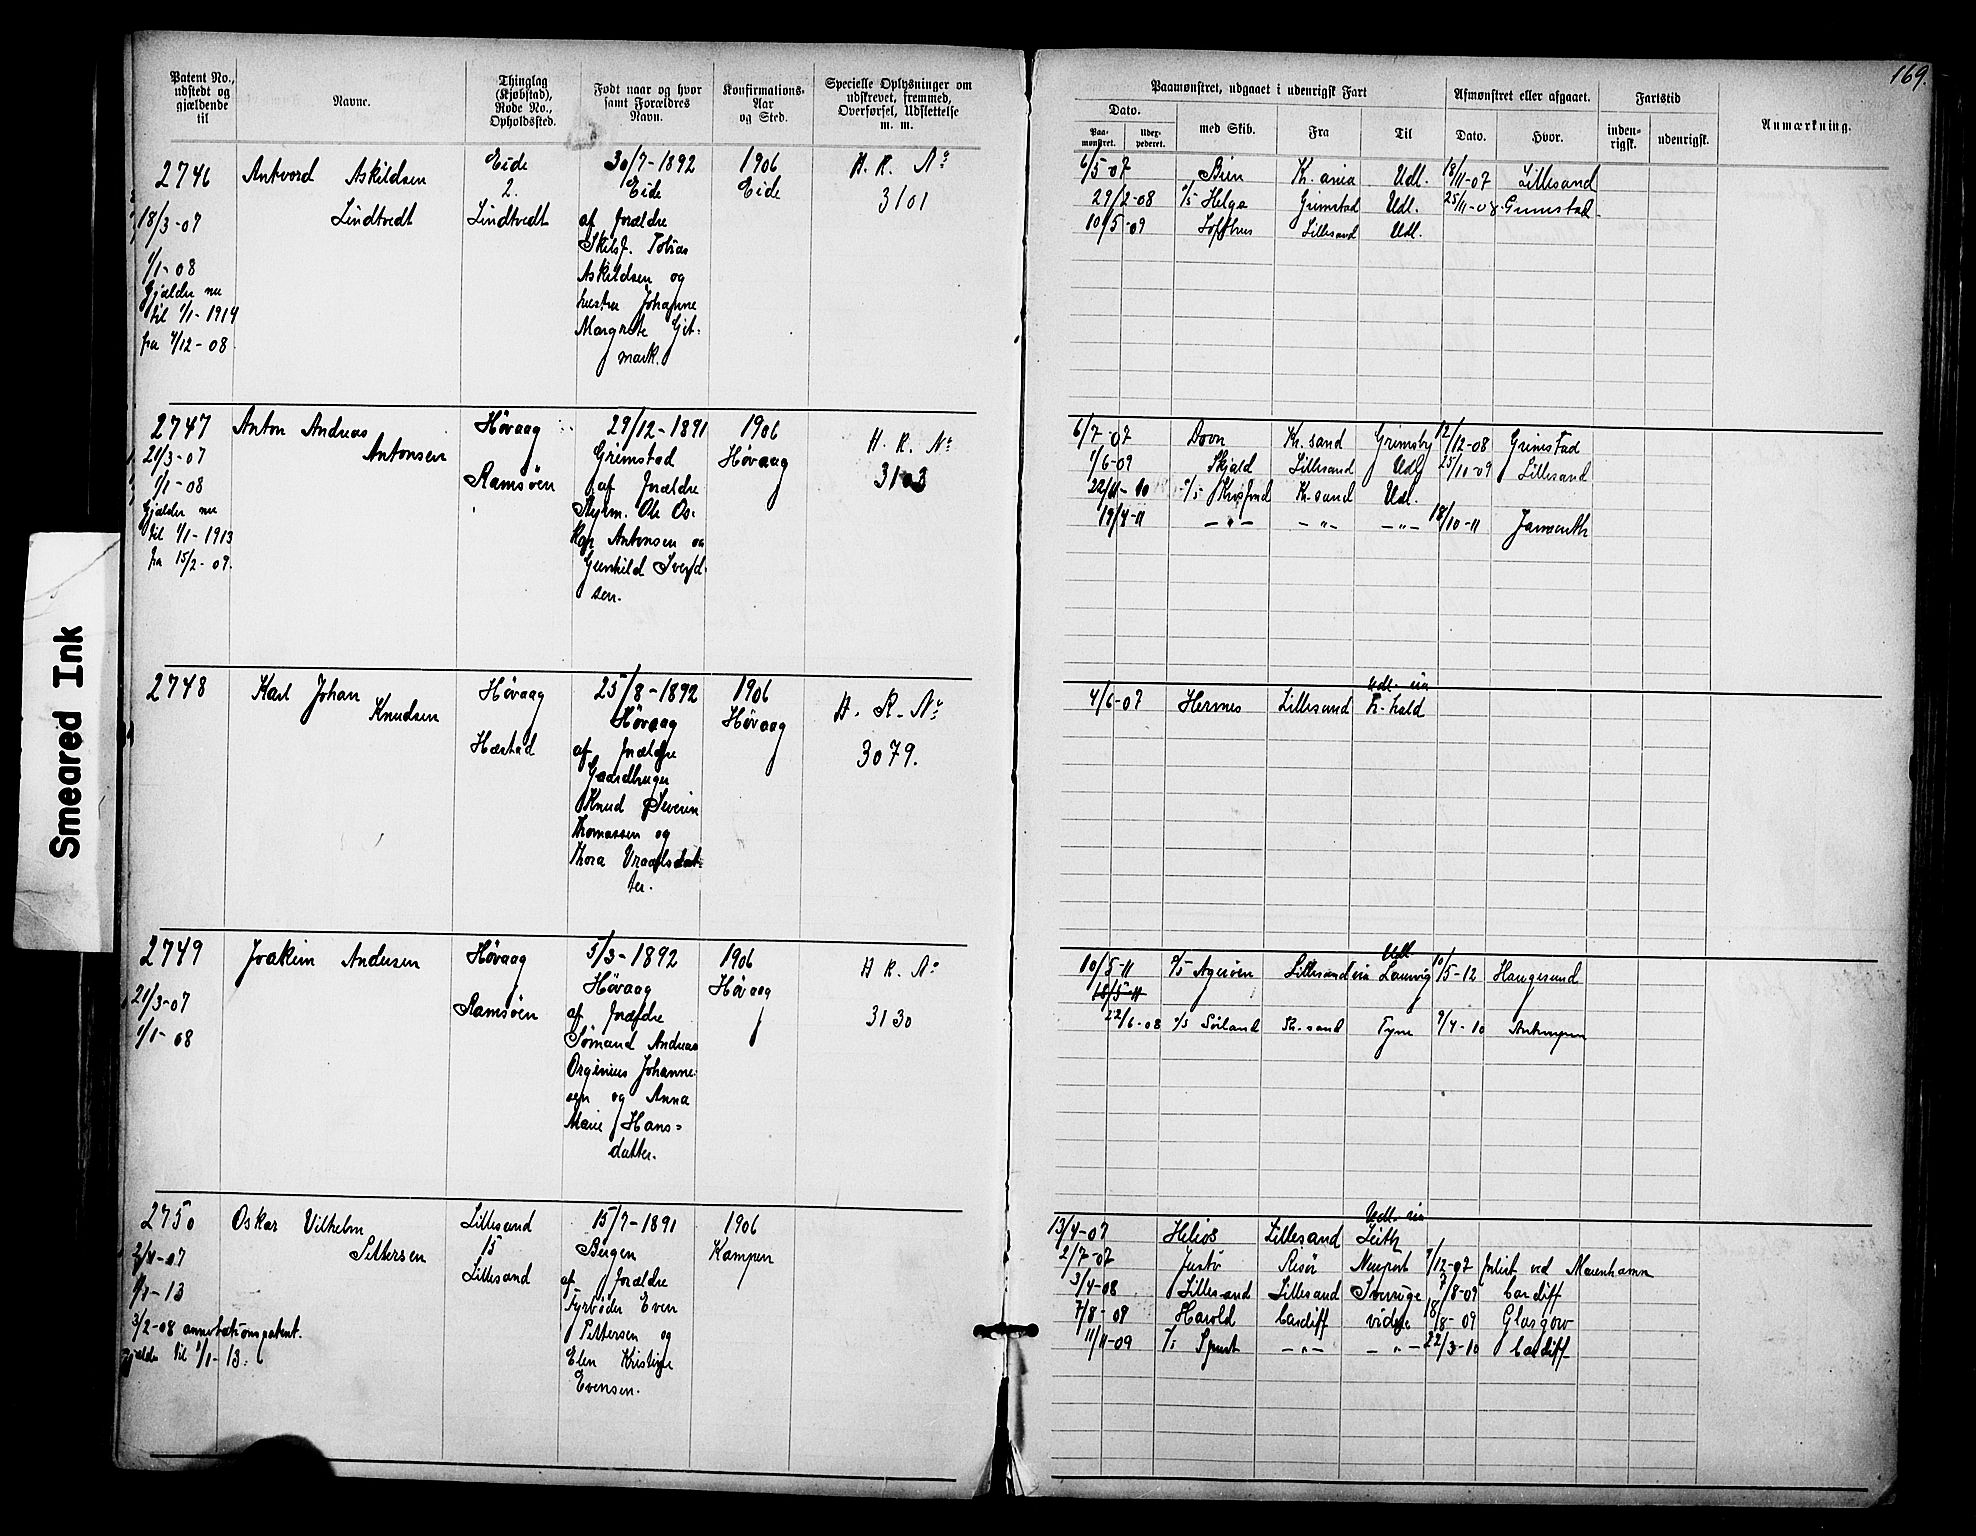 169.
Patent No., udstedt og gjældende til
Navne.
Thinglag (Kjøbstad), Rode No., Opholdssted.
Født naar og hvor samt Forældres Navn.
Konfirmations-Aar og Sted.
Specielle Oplysninger om udskrevet, fremmed, Overførsel, Udslettelse m. m.
Paamønstret, udgaaet i udenrigsk Fart
Dato.
Paa-mønstret.
Uder-pederet.
med Skib.
Fra
Til
Afmønstret eller afgaaet.
Dato.
Hvor.
Fartstid
inden-rigsk.
udenrigsk.
Anmærkning.
Smeared Ink
2746
18/3-07
1/1-08
Gjælder nu
til 1/1-1914
fra 4/12-08.
Antvord Askildsen
Lindtvedt
Eide
2.
Lindtvedt
30/7-1892
Eide
af Forældre
Skilsf. Tobias
Askildsen og
hustru Johanne
Margrete Git-
mark.
1906
Eide
A. R. No
3101
6/5-07 Bien Kr.ania Udl. 18/11-07 Lillesand
29/2-08 S/S Helga Grimstad Udl. 25/11-08 Grimstad
10/5-09 Lofthus Lillesand Udl.
2747
21/3-07
1/1-08
Gjælder nu
til 1/1-1913
fra 15/2-09.
Anton Andreas
Antonsen
Høvaag
Ramsøen
29/12-1891
Grimstad
af Forældre
Styrm. Ole Os-
kar Antonsen og
Gunhild Svend-
sen.
1906
Høvaag
A. R. No
3103
6/7-07 Dovn Kr.sand Grimsby 12/12-08 Grimstad
1/6-09 Skjald Lillesand Udl 25/11-09 Lillesand
22/11-10 S/S Kr.sand Udl.
19/4-11 -"- -"- -"- 18/10-11 Jarmouth
2748
Karl Johan
Knudsen
Høvaag
Hæstad
25/8-1892
Høvaag
af Forældre
Gaardbruger
Knud Severin
Thomassen og
Thora Vraalsdat-
ter.
1906
Høvaag
A. R. No
3079.
Udl. via
4/6-07 Hermes Lillesand Fr.hald
2749
21/3-07
1/1-08
Joakim Andersen
Høvaag
Ramsøen
5/3-1892
Høvaag
af Forældre
Sømand Andreas
Orginius Johanne-
sen og Anna
Marie Hans-
datter.
1906
Høvaag
A R. No
3130
Udl.
10/5-11 S/S Agerøen Lillesand via Laurvig 10/5-12 Haugesund
18/5-11
22/6-08 S/S Sørland Kr.sand Tyne 9/4-10 Antwerpen
2750
2/4-07
1/1-13
3/2-08 annotationspatent.
Gjælder til 1/1-13.
Oskar Vilhelm
Pettersen
Lillesand
15
Lillesand
15/7-1891
Bergen
af Forældre
Fyrbøder Even
Pettersen og
Elen Kristine
Evensen.
1906
Kampen
Udl. via
13/4-07 Helios Lillesand Leith
2/7-07 Justø Risør Newport 7/12-07 forlist ved Marienhamn
3/4-08 Lillesand Lillesand Sverrige 7/8-09 Cardiff
7/8-09 Harold Cardiff vidre 18/8-09 Glasgow
11/11-09 S/S Spurt -"- -"- 22/3-10 Cardiff